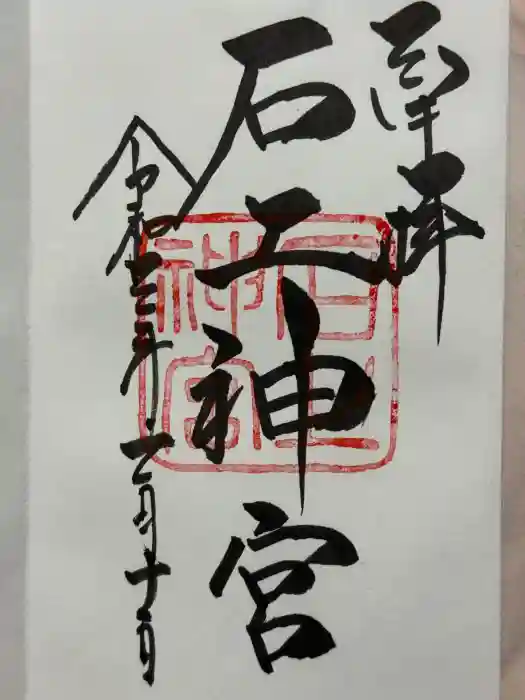 奉拝
石上神宮
令和三年二月十日
石上
神宮